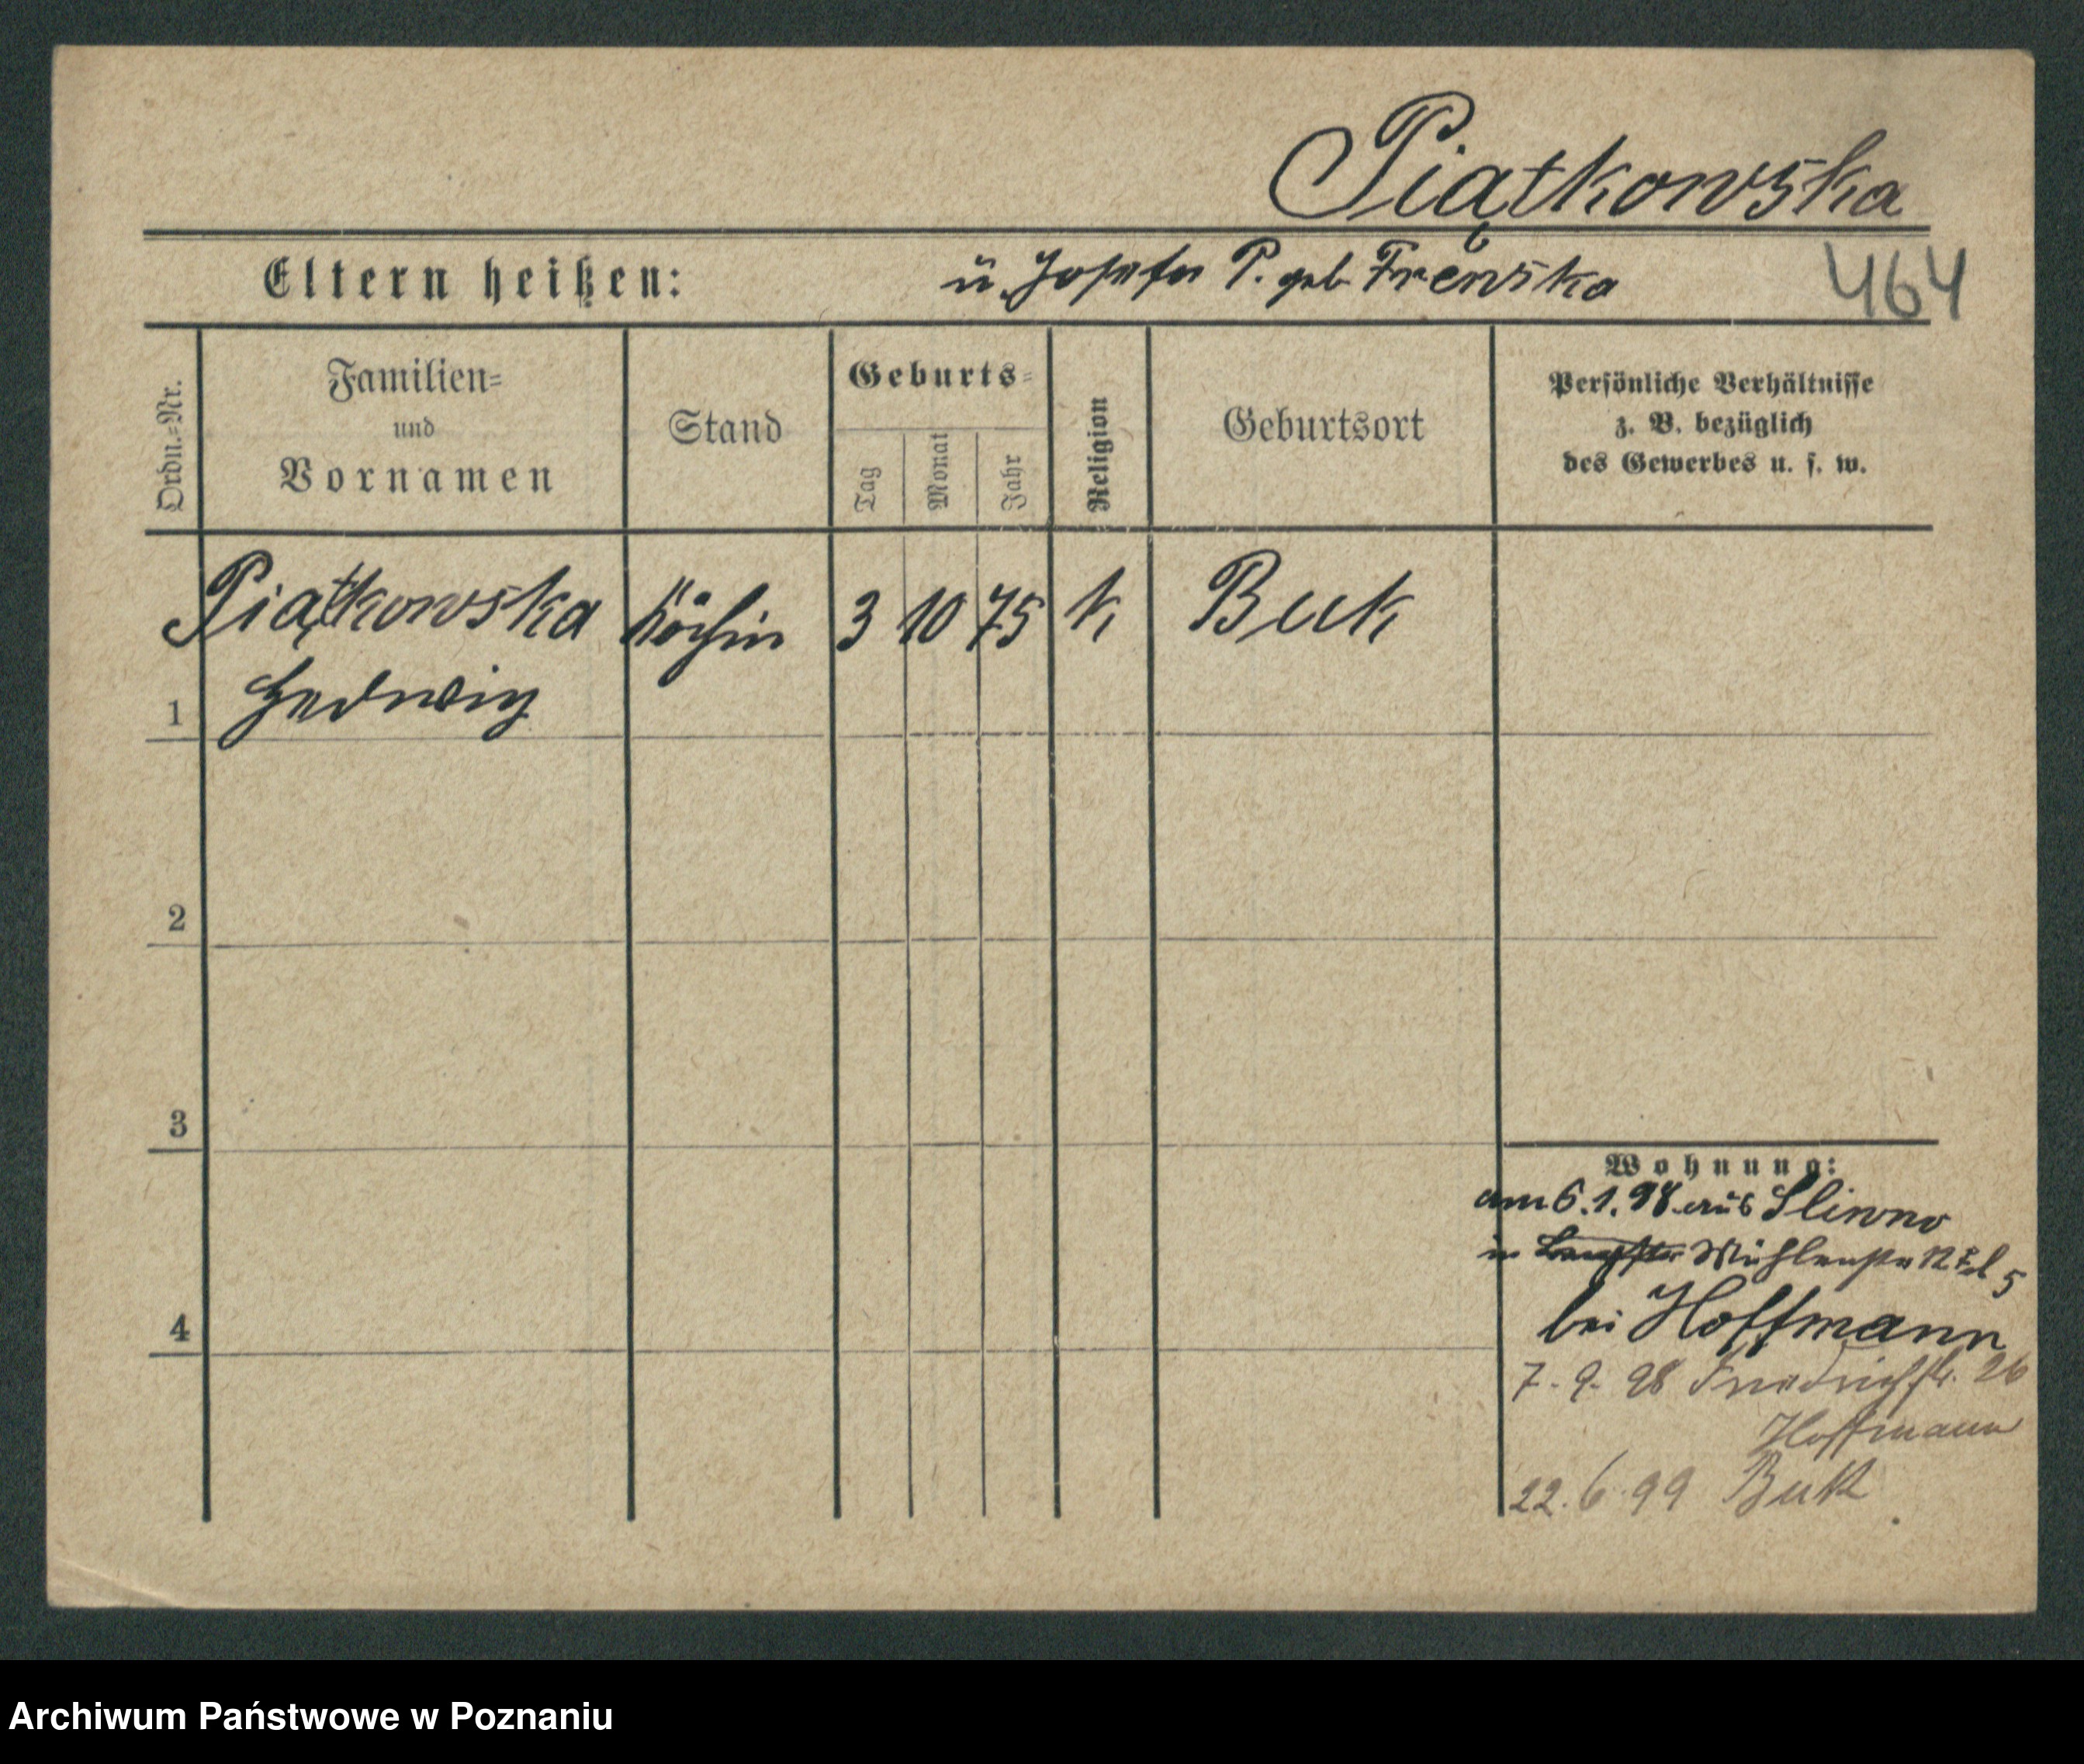 Piątkowska
Eltern heißen: ü. Josefa P. geb. Frenska
464
Ordn.=Nr.
Familien=
und
Vornamen
Stand
Geburts=
Tag
Monat
Jahr
Religion
Geburtsort
Persönliche Verhältnisse
z. B. bezüglich
des Gewerbes u. s. w.
1
Piątkowska Köchin 3 10 75 k Buk
Hedwig
2
3
4
Wohnung:
am 6.1.98 aus Sliwno
in Mühlenstr 12
5
bei Hoffmann
7.9.98 Friedrichstr. 26
Hoffmann
22.6.99 Buk
Archiwum Państwowe w Poznaniu